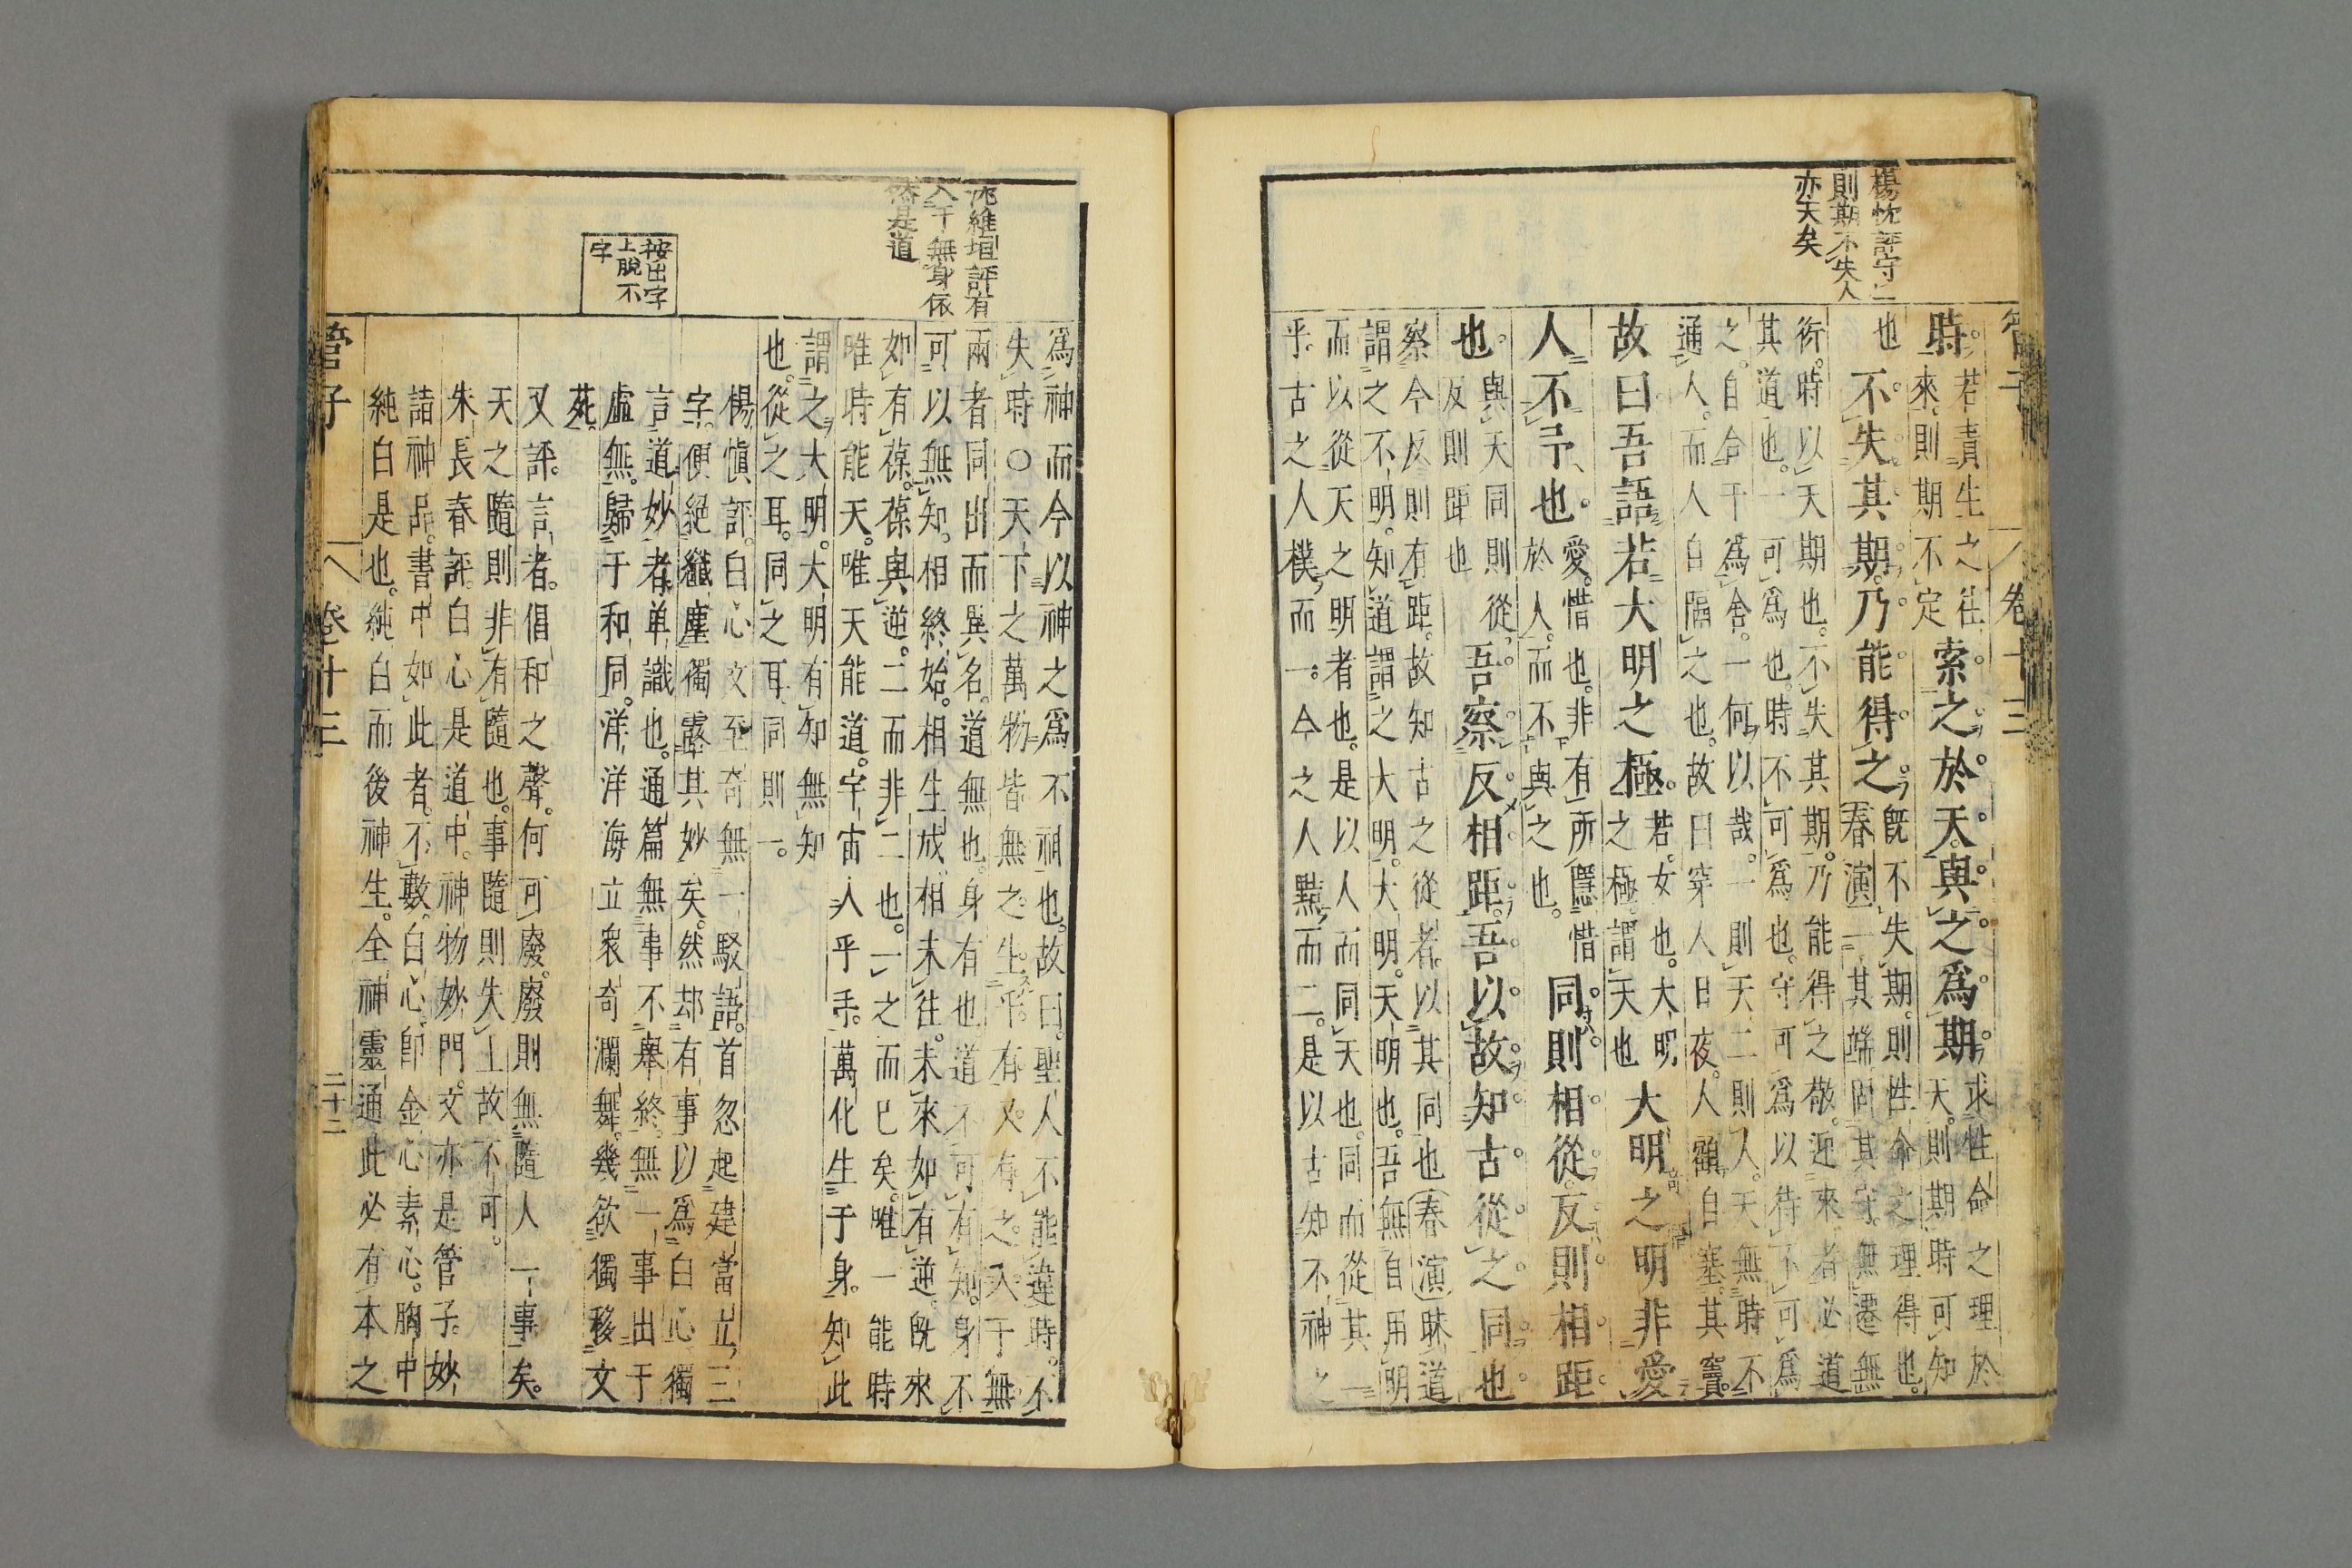 楊忱評守一
則期不失人
亦天矣
管子
卷十三
時
若責生之往
來則期不定
索之於天與之爲期
求性命之理於
天則期時可知
也
不失其期乃能得之
既不失期則性命之理得也
春演一其端固其守無遷無
衒時以天期也不失其期乃能得之敬迎來者必道
其道也一可爲也時不可爲也守可爲以待不可爲
之自合干爲舍一何以哉一則天二則人天無時不
通人而人自隔之也故曰穿人日夜人顧自塞其竇
故曰吾語若大明之極
若女也大明
之極謂天也
大明之明非愛
人不予也
愛惜也非有所隱惜
於人而不與之也
同則相從反則相距
也
與天同則從
反則距也
吾察反相距吾以故知古從之同也
察今反則有距故知古之從者以其同也春演昧道
謂之不明知道謂之大明大明天明也吾無自用明
而以從天之明者也是以人而同天也同而從其一
乎古之人樸而一今之人黠而二是以古知不神之
沈維垣評有
入干無身依
然是道
按出字
上脫不
字
爲神而今以神之爲不神也故曰聖人不能違時不
失時〇天下之萬物皆無之生乎有又有之入于無
兩者同出而異名道無也身有也道不可有知身不
可以無知相終始相生成相未往未來如有逆既來
如有葆葆與逆二而非二也一之而已矣唯一能時
唯時能天唯天能道宇宙人乎手萬化生于身知此
謂之大明大明有知無知
也從之耳同之耳同則一
楊愼評白心文至奇無一駁語首忽起建當立三
字便絕纖塵獨露其妙矣然却有事以爲白心獨
言道妙者单識也通篇無事不舉終無一事出于
虛無歸于和同洋洋海立衆奇瀾舞幾欲獨移文
苑
又評言者倡和之聲何可廢廢則無隨人一事矣
天之隨則非有隨也事隨則失上故不可
朱長春評白心是道中神物妙門文亦是管子妙
諸神品書中如此者不數白心卽金心素心胸中
純白是也純白而後神生全神靈通此必有本之
管子
卷十三
二十二